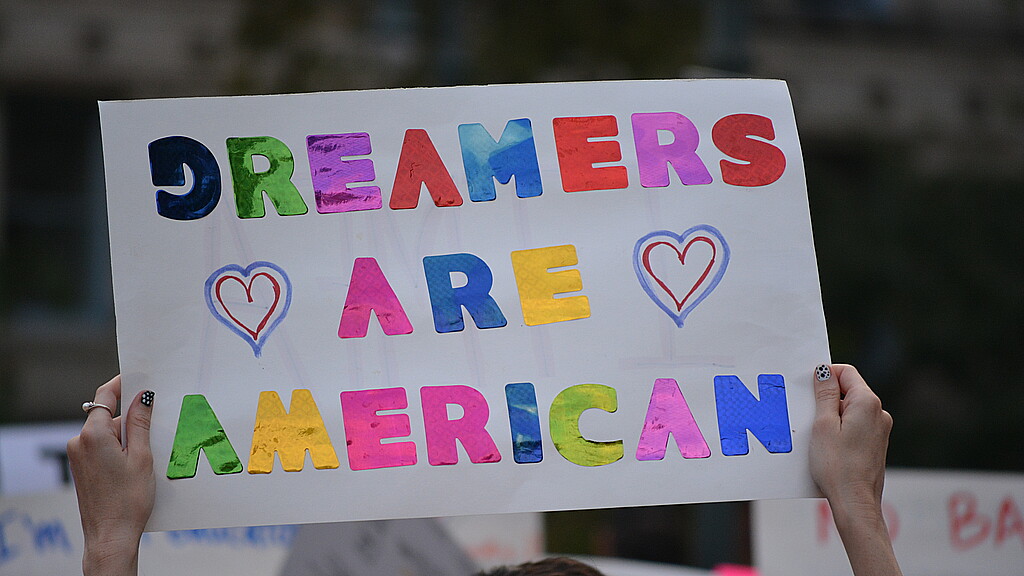 DREAMERS
ARE
AMERICAN
I'm
BA